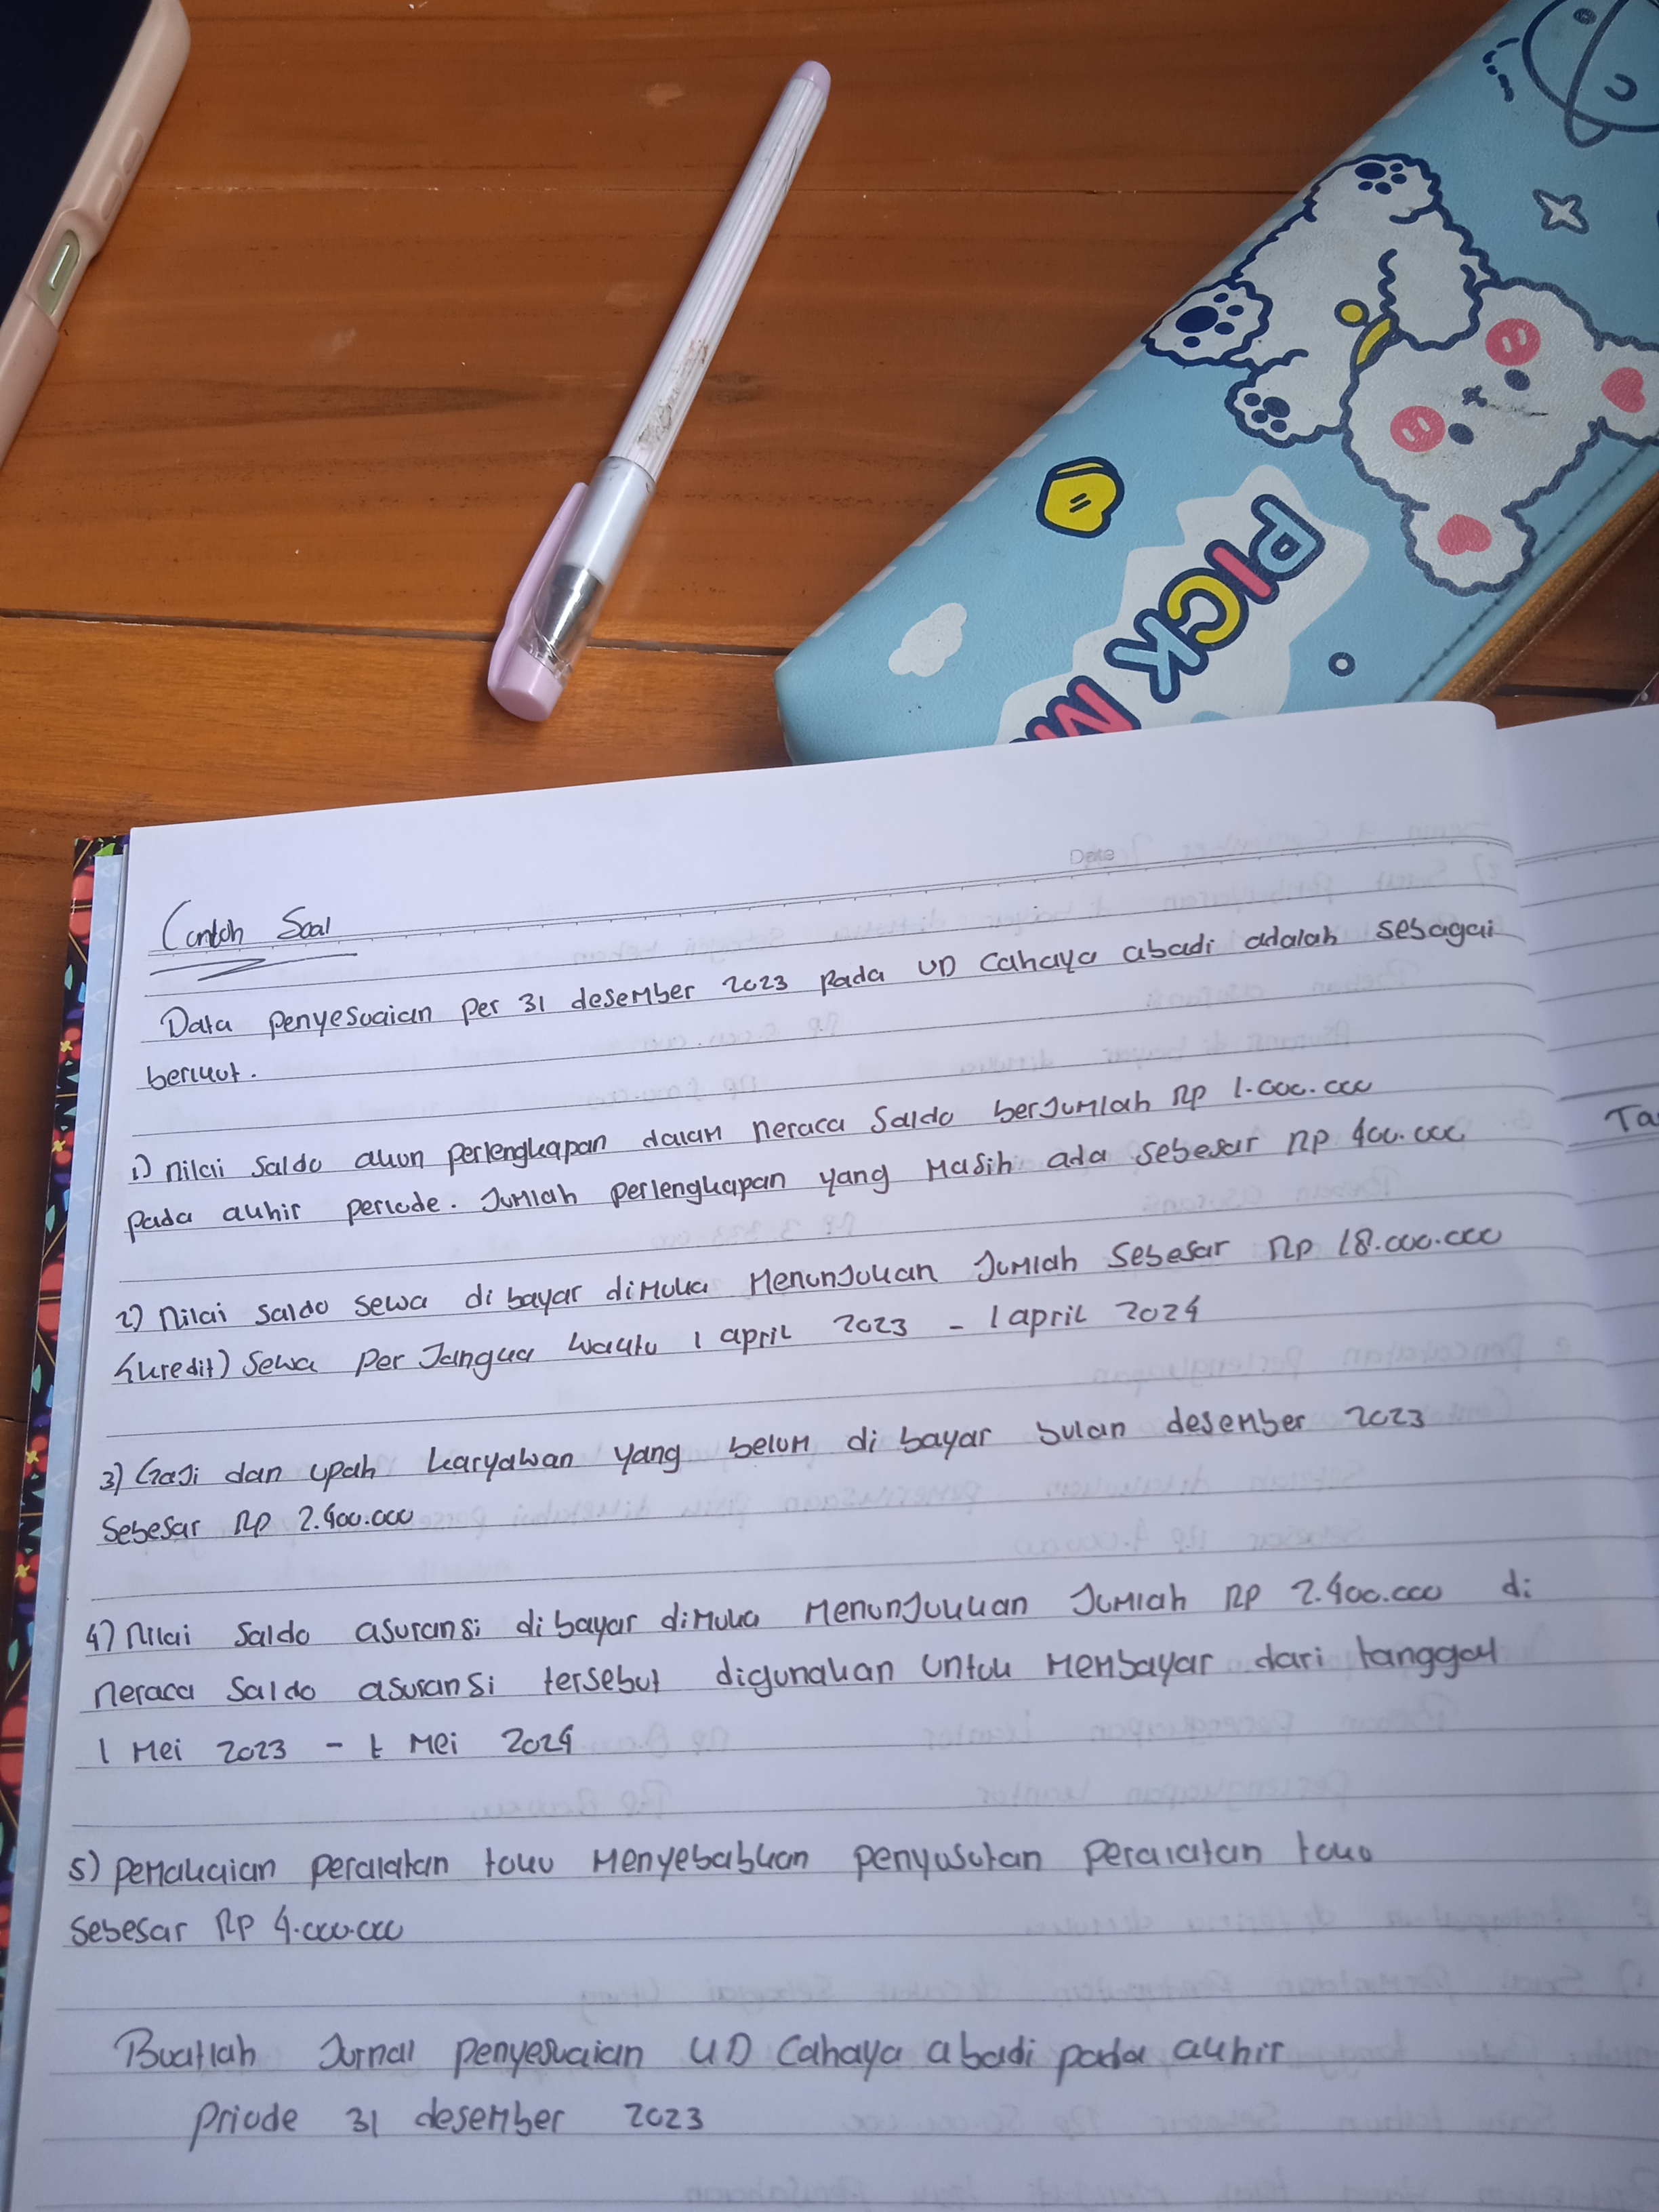 PICK M
Date
Contoh Soal
Data penyesuaian per 31 desember 2023 pada UD Cahaya abadi adalah sebagai
berikut.
1) nilai saldo akun perlengkapan dalam neraca saldo berjumlah Rp 1.000.000
pada akhir periode. Jumlah perlengkapan yang masih ada sebesar Rp 400.000
Ta
2) nilai saldo sewa di bayar dimuka menunjukan jumlah sebesar Rp 18.000.000
(kredit) sewa per jangka waktu 1 april 2023 - 1 april 2024
3) Gaji dan upah karyawan yang belum di bayar bulan desember 2023
sebesar Rp 2.400.000
4) nilai saldo asuransi di bayar dimuka menunjukkan jumlah Rp 2.400.000 di
neraca saldo asuransi tersebut digunakan untuk membayar dari tanggal
1 mei 2023 - 1 mei 2024
5) pemakaian peralatan toko menyebabkan penyusutan peralatan toko
sebesar Rp 4.000.000
Buatlah Jurnal penyesuaian UD Cahaya abadi pada akhir
priode 31 desember 2023